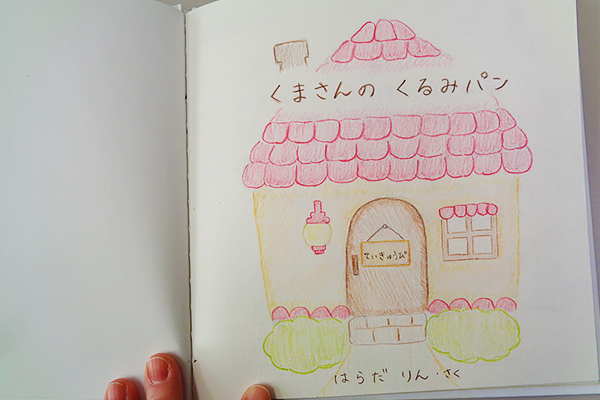 くまさんの くるみパン
ていきゅうび
はらだ りん・さく